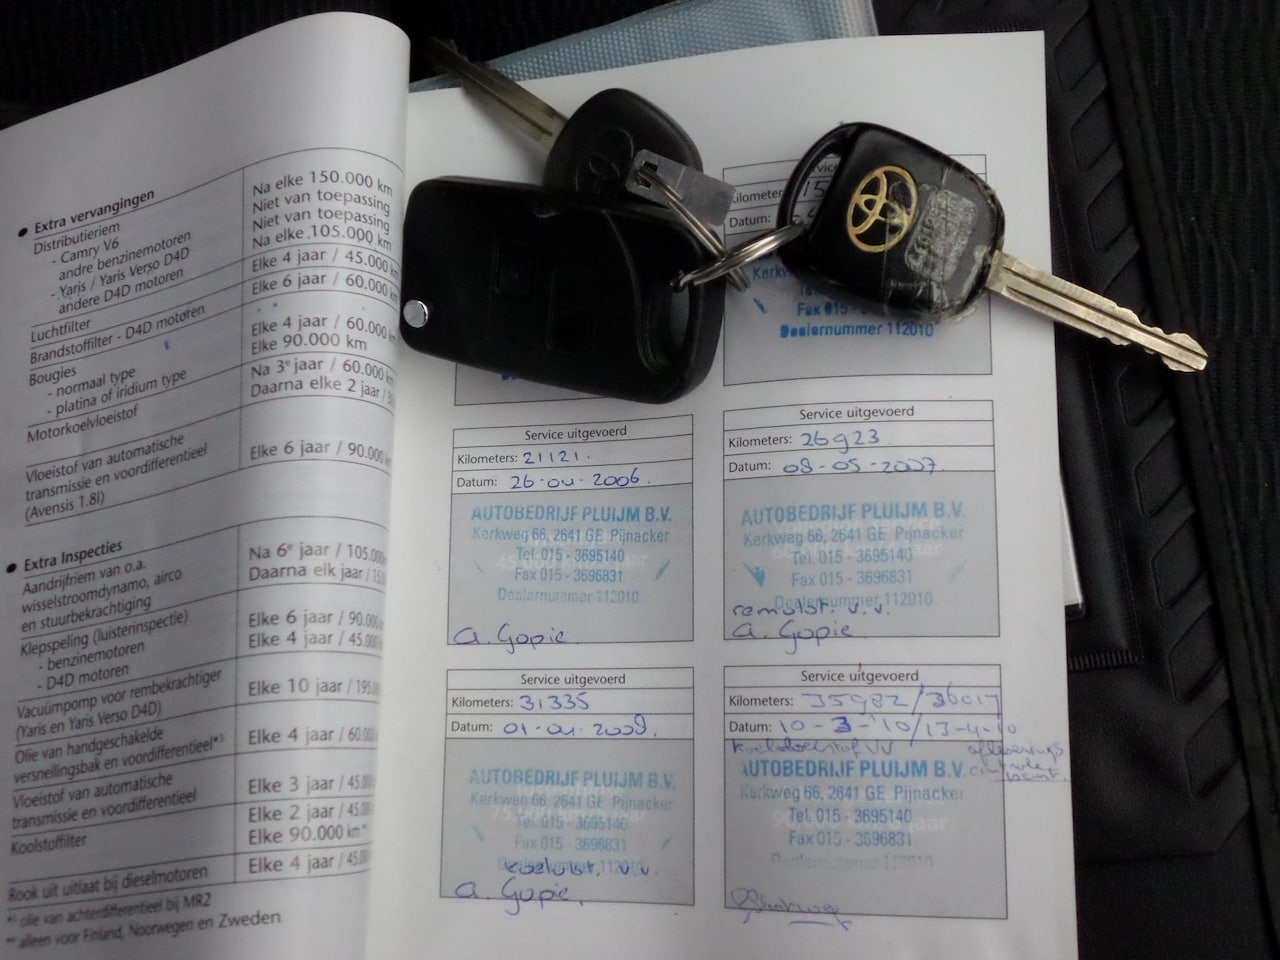 • Extra vervangingen
Distributieriem
- Camry V6
andre benzinemotoren
- Yaris / Yaris Verso D4D
andere D4D motoren
Luchtfilter
Brandstoffilter - D4D motoren
Bougies
- normaal type
- platina of iridium type
Motorkoelvloeistof
Vloeistof van automatische
transmissie en voordifferentieel
(Avensis 1.8l)
Na elke 150.000 km
Niet van toepassing
Niet van toepassing
Na elke 105.000 km
Elke 4 jaar / 45.000
Elke 6 jaar / 60.000
Elke 4 jaar / 60.000
Elke 90.000 km
Na 3e jaar / 60.000 km
Daarna elke 2 jaar /
Elke 6 jaar / 90.000
• Extra Inspecties
Aandrijfriem van o.a.
wisselstroomdynamo, airco
en stuurbekrachtiging
Klepspeling (luisterinspectie)
- benzinemotoren
- D4D motoren
Vacuümpomp voor rembekrachtiger
(Yaris en Yaris Verso D4D)
Olie van handgeschakelde
versnellingsbak en voordifferentieel*)
Vloeistof van automatische
transmissie en voordifferentieel
Koolstoffilter
Rook uit uitlaat bij dieselmotoren
Na 6e jaar / 105.000
Daarna elk jaar /
Elke 6 jaar / 90.000
Elke 4 jaar / 45.000
Elke 10 jaar / 195.
Elke 4 jaar / 60.000
Elke 3 jaar / 45.000
Elke 2 jaar / 45.000
Elke 90.000 km **
Elke 4 jaar / 45.000
*) olie van achterdifferentieel bij MR2
** alleen voor Finland, Noorwegen en Zweden
Kilometers: 15
Datum:
Kerkw
Fax 015 -
Dealernummer 112010
Service uitgevoerd
Kilometers: 21121.
Datum: 26-04-2006.
AUTOBEDRIJF PLUIJM B.V.
Kerkweg 66, 2641 GE Pijnacker
Tel. 015 - 3695140
Fax 015 - 3696831
Dealernummer 112010
a. Gopie
Service uitgevoerd
Kilometers: 26923
Datum: 08-05-2007.
AUTOBEDRIJF PLUIJM B.V.
Kerkweg 66, 2641 GE Pijnacker
Tel. 015 - 3695140
Fax 015 - 3696831
Dealernummer 112010
remvlst. v.v.
a. Gopie
Service uitgevoerd
Kilometers: 31335
Datum:
AUTOBEDRIJF PLUIJM B.V.
Kerkweg 66, 2641 GE Pijnacker
Tel. 015 - 3695140
Fax 015 - 3696831
Dealernummer 112010
koelvlst. v.v.
a. Gopie.
Service uitgevoerd
Kilometers: 35982/36017
Datum: 10-3-'10/13-4-10
koelvloeistof VV
afleverings
AUTOBEDRIJF PLUIJM B.V.
Kerkweg 66, 2641 GE Pijnacker
Tel. 015 - 3695140
Fax 015 - 3696831
Dealernummer 112010